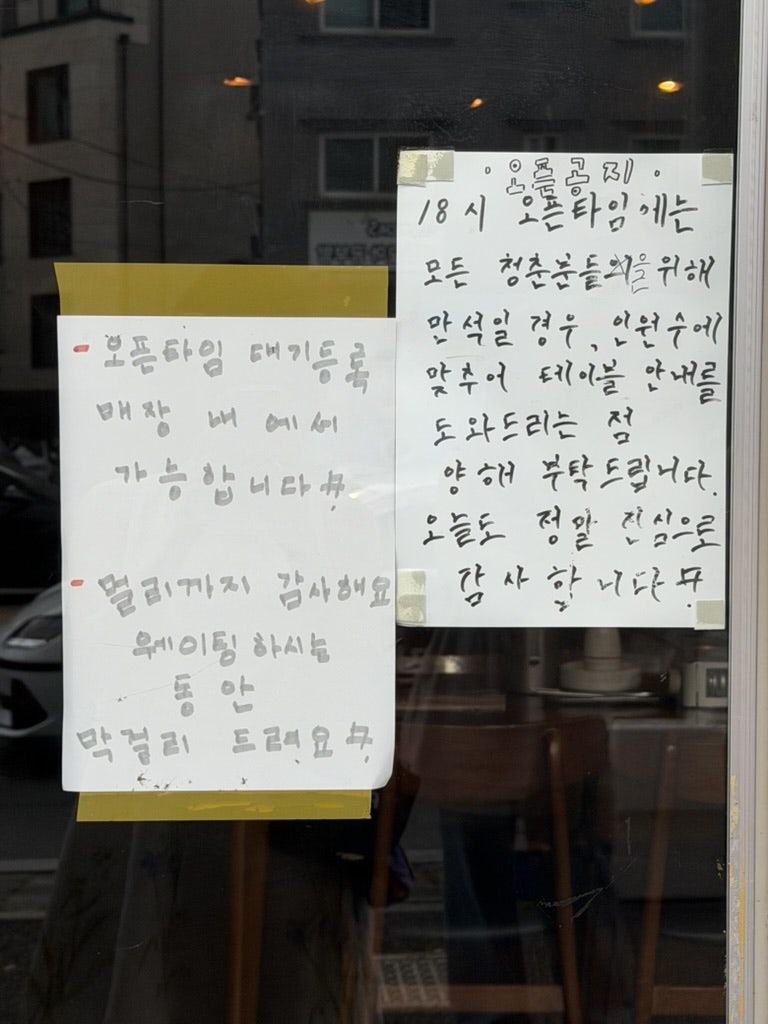 - 오픈타임 대기등록
매장 내 에서
가능합니다#
- 멀리까지 감사해요
웨이팅 하시는
동안
막걸리 드려요#
· 오픈공지 ·
18시 오픈타임에는
모든 청춘분들을 위해
만석일 경우, 인원수에
맞추어 테이블 안내를
도와드리는 점
양해 부탁드립니다.
오늘도 정말 진심으로
감사합니다#